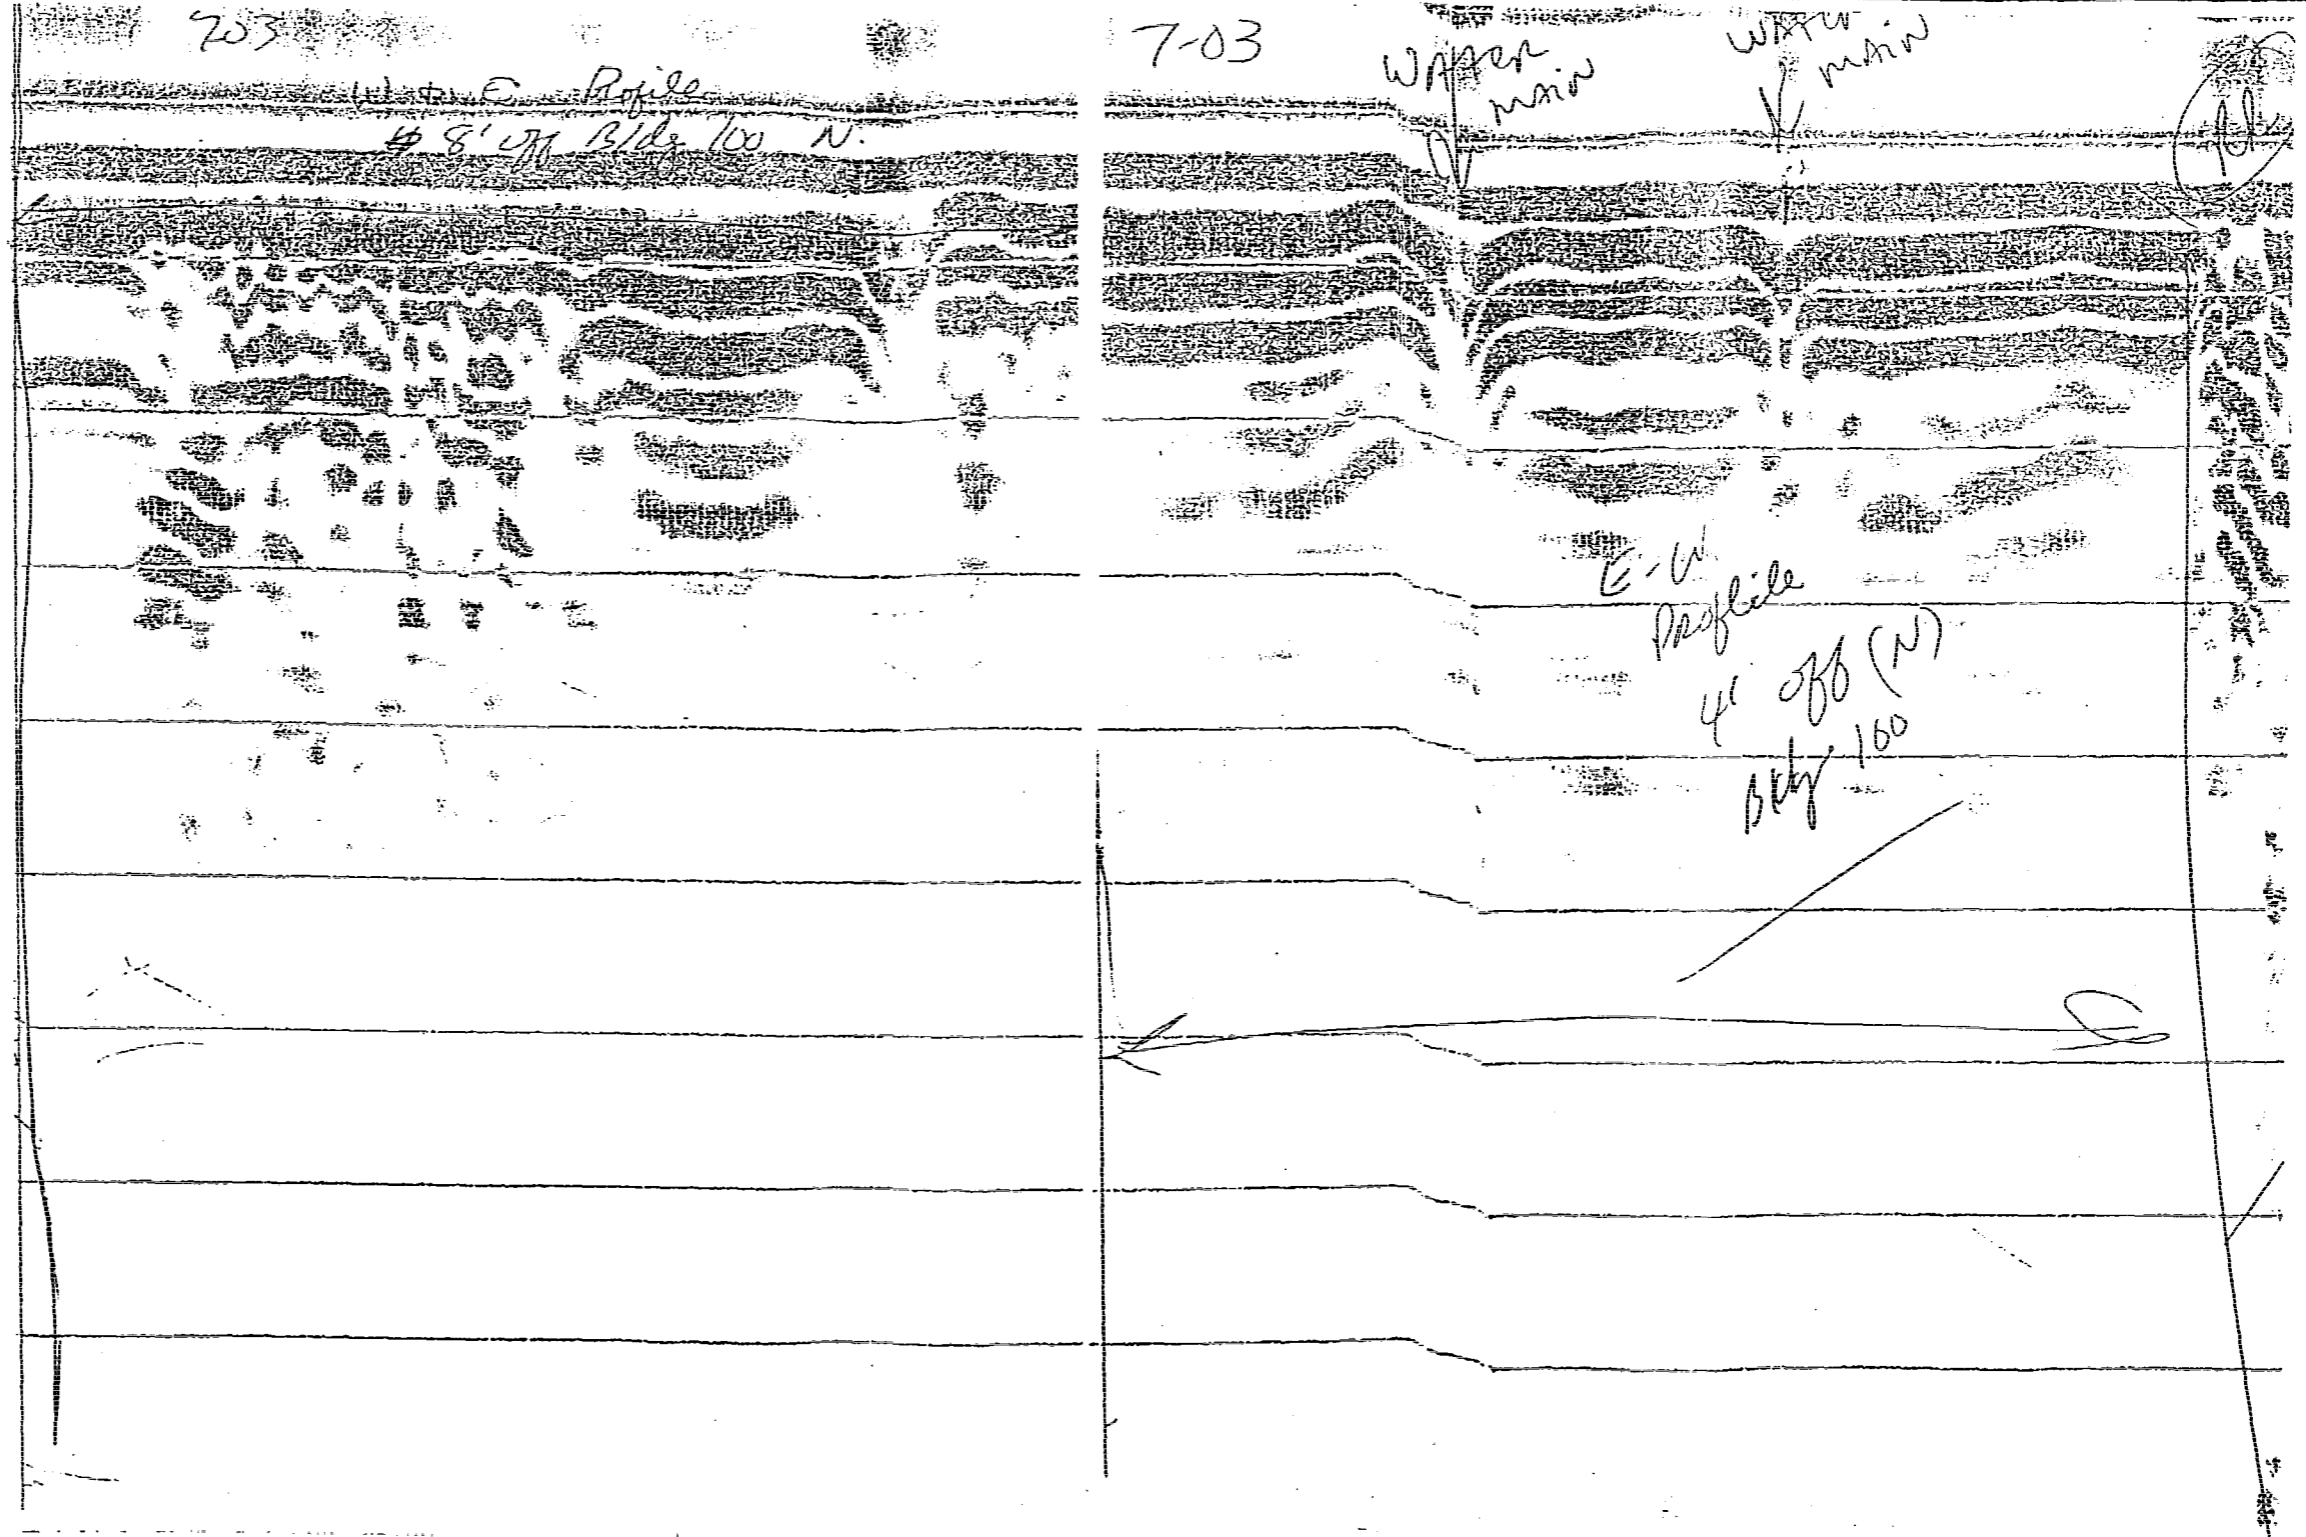 703
W to E Profile
8' off Bldg 100 N.
7-03
WATER
MAIN
WATER
MAIN
E-W
Profile
4' off (N)
Bldg 100